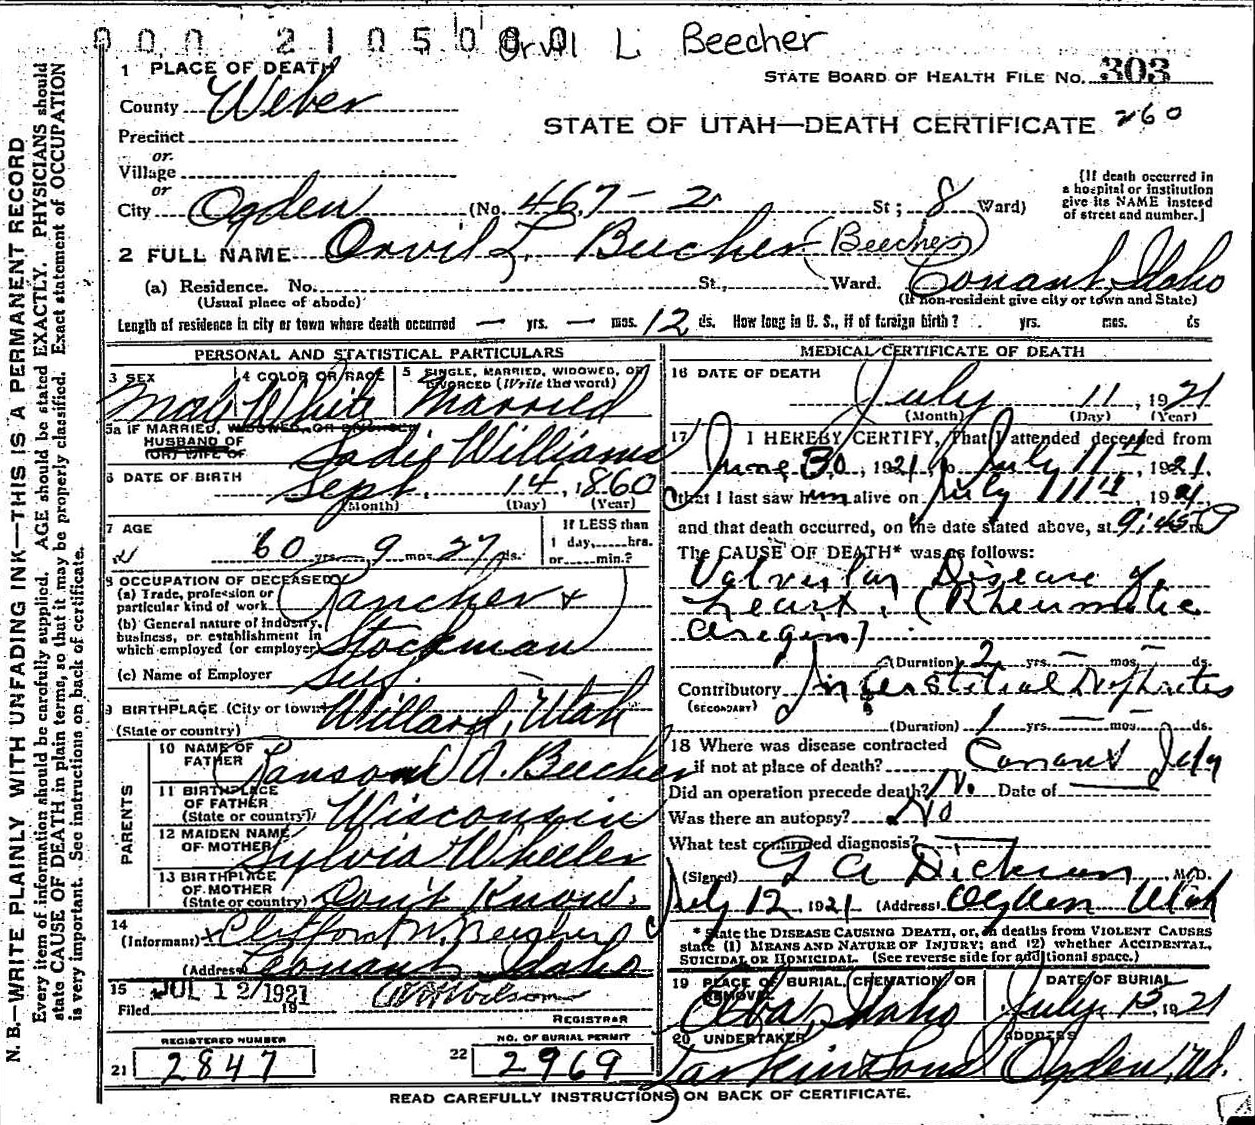 000 2105080 Orvil L Beecher
1 PLACE OF DEATH
STATE BOARD OF HEALTH FILE NO. 303
County Weber
STATE OF UTAH—DEATH CERTIFICATE 260
Precinct
or.
Village
or
City Ogden (No. 467-2 St; 8 Ward)
[If death occurred in
a hospital or institution
give its NAME instead
of street and number.]
2 FULL NAME Orvil L. Beecher (Beecher)
(a) Residence. No. St., Ward. Conant, Idaho
(Usual place of abode) (If non-resident give city or town and State)
Length of residence in city or town where death occurred — yrs. — mos. 12 ds. How long in U. S., if of foreign birth? yrs. mos. ds
PERSONAL AND STATISTICAL PARTICULARS
3 SEX 4 COLOR OR RACE 5 SINGLE, MARRIED, WIDOWED, OR
DIVORCED (Write the word)
Male White Married
5a IF MARRIED, WIDOWED, OR DIVORCED
HUSBAND OF
(OR) WIFE OF Sadie Williams
6 DATE OF BIRTH Sept. 14, 1860
(Month) (Day) (Year)
7 AGE If LESS than
60 yrs. 9 mos. 27 ds. 1 day, hrs.
or min.?
8 OCCUPATION OF DECEASED
(a) Trade, profession or
particular kind of work Rancher &
(b) General nature of Industry,
business, or establishment in
which employed (or employer) Stockman
(c) Name of Employer Self
9 BIRTHPLACE (City or town) Willard, Utah
(State or country)
PARENTS
10 NAME OF
FATHER Ransom A. Beecher
11 BIRTHPLACE
OF FATHER
(State or country) Wisconsin
12 MAIDEN NAME
OF MOTHER Sylvia Wheeler
13 BIRTHPLACE
OF MOTHER
(State or country) Don't Know.
14
(Informant) Clifton M. Beecher
(Address) Conant Idaho
15 JUL 12 1921
Filed 19 Wilson
REGISTRAR
REGISTERED NUMBER NO. OF BURIAL PERMIT
21 2847 22 2969
MEDICAL CERTIFICATE OF DEATH
16 DATE OF DEATH July 11, 1921
(Month) (Day) (Year)
17 I HEREBY CERTIFY, That I attended deceased from
June 30, 1921, to July 11th, 1921.
that I last saw him alive on July 11th, 1921,
and that death occurred, on the date stated above, at 9:45 P m
The CAUSE OF DEATH* was as follows:
Valvular Disease of
Heart, (Rheumatic
Origin)
(Duration) 2 yrs. — mos. — ds.
Contributory Interstitial Nephritis
(SECONDARY)
(Duration) 1 yrs. — mos. — ds.
18 Where was disease contracted
if not at place of death? Conant Ida
Did an operation precede death? No. Date of
Was there an autopsy? No
What test confirmed diagnosis?
(Signed) G A Dickson M.D.
July 12, 1921 (Address) Ogden Utah
* State the DISEASE CAUSING DEATH, or, in deaths from VIOLENT CAUSES
state (1) MEANS AND NATURE OF INJURY; and (2) whether ACCIDENTAL,
SUICIDAL OR HOMICIDAL. (See reverse side for additional space.)
19 PLACE OF BURIAL, CREMATION, OR DATE OF BURIAL
REMOVAL
Elba, Idaho July 15 1921
20 UNDERTAKER ADDRESS
Larkin & Sons Ogden, Ut.
READ CAREFULLY INSTRUCTIONS ON BACK OF CERTIFICATE.
N. B.—WRITE PLAINLY WITH UNFADING INK—THIS IS A PERMANENT RECORD
Every item of information should be carefully supplied. AGE should be stated EXACTLY. PHYSICIANS should
state CAUSE OF DEATH in plain terms, so that it may be properly classified. Exact statement of OCCUPATION
is very important. See instructions on back of certificate.